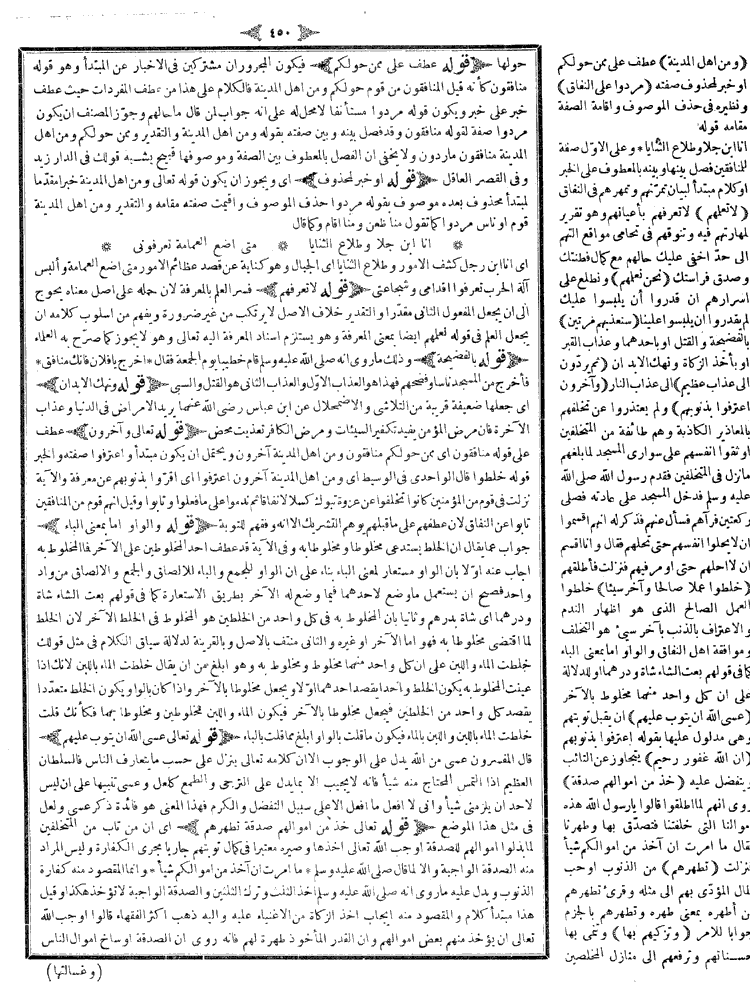 ٤٥٠
حولها قوله عطف على من حولكم فيكون المجروران مشتركين فى الاخبار عن المبتدأ وهو قوله
منافقون كأنه قيل المنافقون من قوم حولكم ومن اهل المدينة فالكلام على هذا من عطف المفردات حيث عطف
خبر على خبر ويكون قوله مردوا مستأنفا لامحل له على انه جواب لمن قال ماحالهم وجوّز المصنف ان يكون
مردوا صفة لقوله منافقون وقد فصل بينه وبين صفته بقوله ومن اهل المدينة والتقدير وممن حولكم ومن اهل
المدينة منافقون ماردون ولا يخفى ان الفصل بالمعطوف بين الصفة وموصوفها قبيح يشبه قولك فى الدار زيد
وفى القصر العاقل قوله اوخبر لمحذوف اى ويجوز ان يكون قوله تعالى ومن اهل المدينة خبرا مقدّما
لمبتدأ محذوف بعده موصوف بقوله مردوا حذف الموصوف واقيمت صفته مقامه والتقدير ومن اهل المدينة
قوم اوناس مردوا كما تقول منا ظعن ومنا اقام وكما قال
* انا ابن جلا وطلاع الثنايا * متى اضع العمامة تعرفونى *
اى انا ابن رجل كشف الامور وطلاع الثنايا اى الجبال وهو كناية عن قصد عظائم الامور متى اضع العمامة وألبس
آلة الحرب تعرفوا اقدامى وشجاعتى قوله لاتعرفهم فسر العلم بالمعرفة لان حمله على اصل معناه يحوج
الى ان يجعل المفعول الثانى مقدّرا والتقدير خلاف الاصل لايرتكب من غير ضرورة ويفهم من اسلوب كلامه ان
يجعل العلم فى قوله نعلمهم ايضا بمعنى المعرفة وهو يستلزم اسناد المعرفة اليه تعالى وهو لايجوز كما صرّح به العلماء
قوله بالفضيحة وذلك ماروى انه صلى الله عليه وسلم قام خطيبا يوم الجمعة فقال * اخرج يافلان فانك منافق *
فأخرج من المسجد ناسا وفضحهم فهذا هو العذاب الاوّل والعذاب الثانى هو القتل والسبى قوله ونهك الابدان
اى جعلها ضعيفة قريبة من التلاشى والاضمحلال عن ابن عباس رضى الله عنهما يريد الامراض فى الدنيا وعذاب
الآخرة فان مرض المؤمن يفيد تكفير السيئات ومرض الكافر تعذيب محض قوله تعالى وآخرون عطف
على قوله منافقون اى ممن حولكم منافقون ومن اهل المدينة آخرون ويحتمل ان يكون مبتدأ واعترفوا صفته والخبر
قوله خلطوا قال الواحدى فى الوسيط اى ومن اهل المدينة آخرون اعترفوا اى اقرّوا بذنوبهم عن معرفة والآية
نزلت فى قوم من المؤمنين كانوا تخلفوا عن غزوة تبوك كسلا لانفاقا ثم ندموا على مافعلوا وتابوا وقيل انهم قوم من المنافقين
تابوا عن النفاق لان عطفهم على ماقبلهم يوهم التشريك الا انه وفقهم للتوبة قوله والواو اما بمعنى الباء
جواب عما يقال ان الخلط يستدعى مخلوطا ومخلوطا به وفى الآية قد عطف احد المخلوطين على الآخر فما المخلوط به
اجاب عنه اوّلا بان الواو مستعار لمعنى الباء بناء على ان الواو للجمع والباء للالصاق والجمع والالصاق من واد
واحد فصح ان يستعمل ماوضع لاحدهما فيما وضع له الآخر بطريق الاستعارة كما فى قولهم بعت الشاء شاة
ودرهما اى شاة بدرهم وثانيا بان المخلوط به فى كل واحد من الخلطين هو المخلوط فى الخلط الآخر لان الخلط
لما اقتضى مخلوطا به فهو اما الآخر او غيره والثانى منتف بالاصل وبالقرينة لدلالة سياق الكلام فى مثل قولك
خلطت الماء واللبن على ان كل واحد منهما مخلوط ومخلوط به وهو ابلغ من ان يقال خلطت الماء باللبن لانك اذا
عينت المخلوط به يكون الخلط واحدا يقصد احدهما اوّلا ويجعل مخلوطا بالآخر واذا كان بالواو يكون الخلط متعددا
يقصد كل واحد من الخلطين فيجعل مخلوطا بالآخر فيكون الماء واللبن مخلوطين ومخلوطا بهما فكأنك قلت
خلطت الماء باللبن واللبن بالماء فيكون ماقلت بالواو ابلغ مما قلت بالباء قوله تعالى عسى الله ان يتوب عليهم
قال المفسرون عسى من الله يدل على الوجوب الا ان كلامه تعالى ينزل على حسب مايتعارف الناس فالسلطان
العظيم اذا التمس المحتاج منه شيأ فانه لايجيب الا بما يدل على الترجى والطمع كلعل وعسى تنبيها على ان ليس
لاحد ان يلزمنى شيأ وانى لا افعل ما افعل الا على سبيل التفضل والكرم فهذا المعنى هو فائدة ذكر عسى ولعل
فى مثل هذا الموضع قوله تعالى خذ من اموالهم صدقة تطهرهم اى ان من تاب من المتخلفين
لما بذلوا اموالهم للصدقة اوجب الله تعالى اخذها وصيره معتبرا فى كمال توبتهم جاريا مجرى الكفارة وليس المراد
منه الصدقة الواجبة والا لما قال صلى الله عليه وسلم * ما امرت ان آخذ من اموالكم شيأ * وانما المقصود منه كفارة
الذنوب ويدل عليه ماروى انه صلى الله عليه وسلم اخذ الثلث وترك الثلثين والصدقة الواجبة لا تؤخذ هكذا وقيل
هذا مبتدأ كلام والمقصود منه ايجاب اخذ الزكاة من الاغنياء عليه واليه ذهب اكثر الفقهاء قالوا اوجب الله
تعالى ان يؤخذ منهم بعض اموالهم وان القدر المأخوذ طهرة لهم فانه روى ان الصدقة اوساخ اموال الناس
(وغسالتها)
(ومن اهل المدينة) عطف على ممن حولكم
او خبر لمحذوف صفته (مردوا على النفاق)
ونظيره فى حذف الموصوف واقامة الصفة
مقامه قوله
انا ابن جلا وطلاع الثنايا * وعلى الاوّل صفة
للمنافقين فصل بينها وبينه بالمعطوف على الخبر
او كلام مبتدأ لبيان تمرّنهم وتمهرهم فى النفاق
(لاتعلمهم) لاتعرفهم بأعيانهم وهو تقرير
لمهارتهم فيه وتنوقهم فى تحامى مواقع التهم
الى حدّ اخفى عليك حالهم مع كمال فطنتك
وصدق فراستك (نحن نعلمهم) ونطلع على
اسرارهم ان قدروا أن يلبسوا عليك
لم يقدروا ان يلبسوا علينا (سنعذبهم مرتين)
بالفضيحة والقتل او باحدهما وعذاب القبر
او بأخذ الزكاة ونهك الابدان (ثم يردّون
الى عذاب عظيم) الى عذاب النار (وآخرون
اعترفوا بذنوبهم) ولم يعتذروا عن تخلفهم
بالمعاذير الكاذبة وهم طائفة من المتخلفين
اوثقوا انفسهم على سوارى المسجد لما بلغهم
مانزل فى المتخلفين فقدم رسول الله صلى الله
عليه وسلم فدخل المسجد على عادته فصلى
ركعتين فرآهم فسأل عنهم فذكر له انهم اقسموا
ان لايحلوا انفسهم حتى تحلهم فقال وانا اقسم
ان لا احلهم حتى اومر فيهم فنزلت فأطلقهم
(خلطوا عملا صالحا وآخر سيئا) خلطوا
العمل الصالح الذى هو اظهار الندم
والاعتراف بالذنب بآخر سيئ هو التخلف
وموافقة اهل النفاق والواو اما بمعنى الباء
كما فى قولهم بعت الشاء شاة ودرهما او للدلالة
على ان كل واحد منهما مخلوط بالآخر
(عسى الله ان يتوب عليهم) ان يقبل توبتهم
وهى مدلول عليها بقوله اعترفوا بذنوبهم
(ان الله غفور رحيم) يتجاوز عن التائب
ويتفضل عليه (خذ من اموالهم صدقة)
روى انهم لما اطلقوا قالوا يارسول الله هذه
اموالنا التى خلفتنا فتصدّق بها وطهرنا
فقال ما امرت ان آخذ من اموالكم شيأ
فنزلت (تطهرهم) من الذنوب او حب
المال المؤدّى بهم الى مثله وقرئ تطهرهم
من أطهره بمعنى طهره وتطهرهم بالجزم
جوابا للامر (وتزكيهم بها) وتنمى بها
حسناتهم وترفعهم الى منازل المخلصين